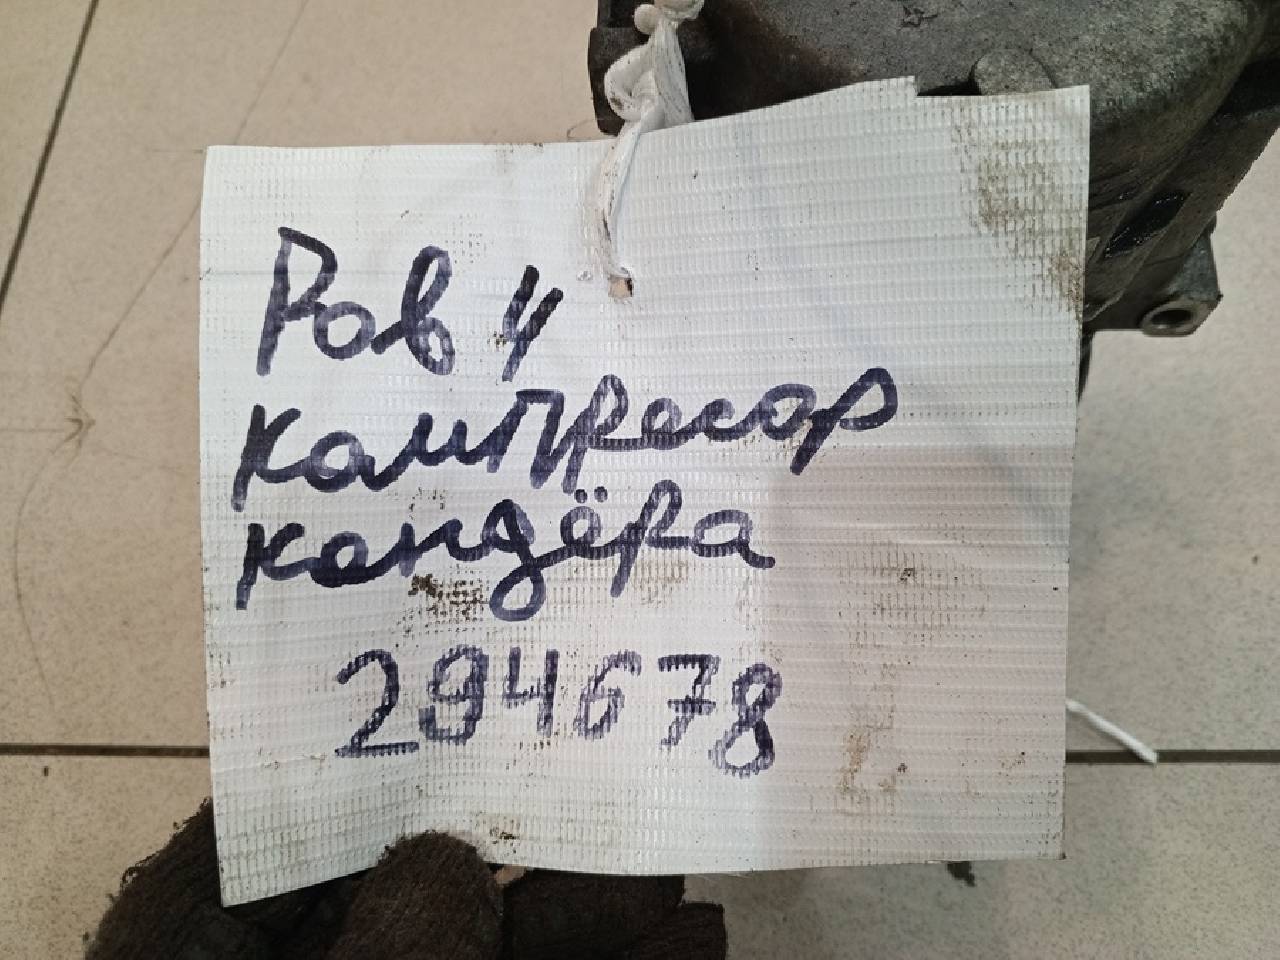 Рав 4
компресор
кондёра
294678